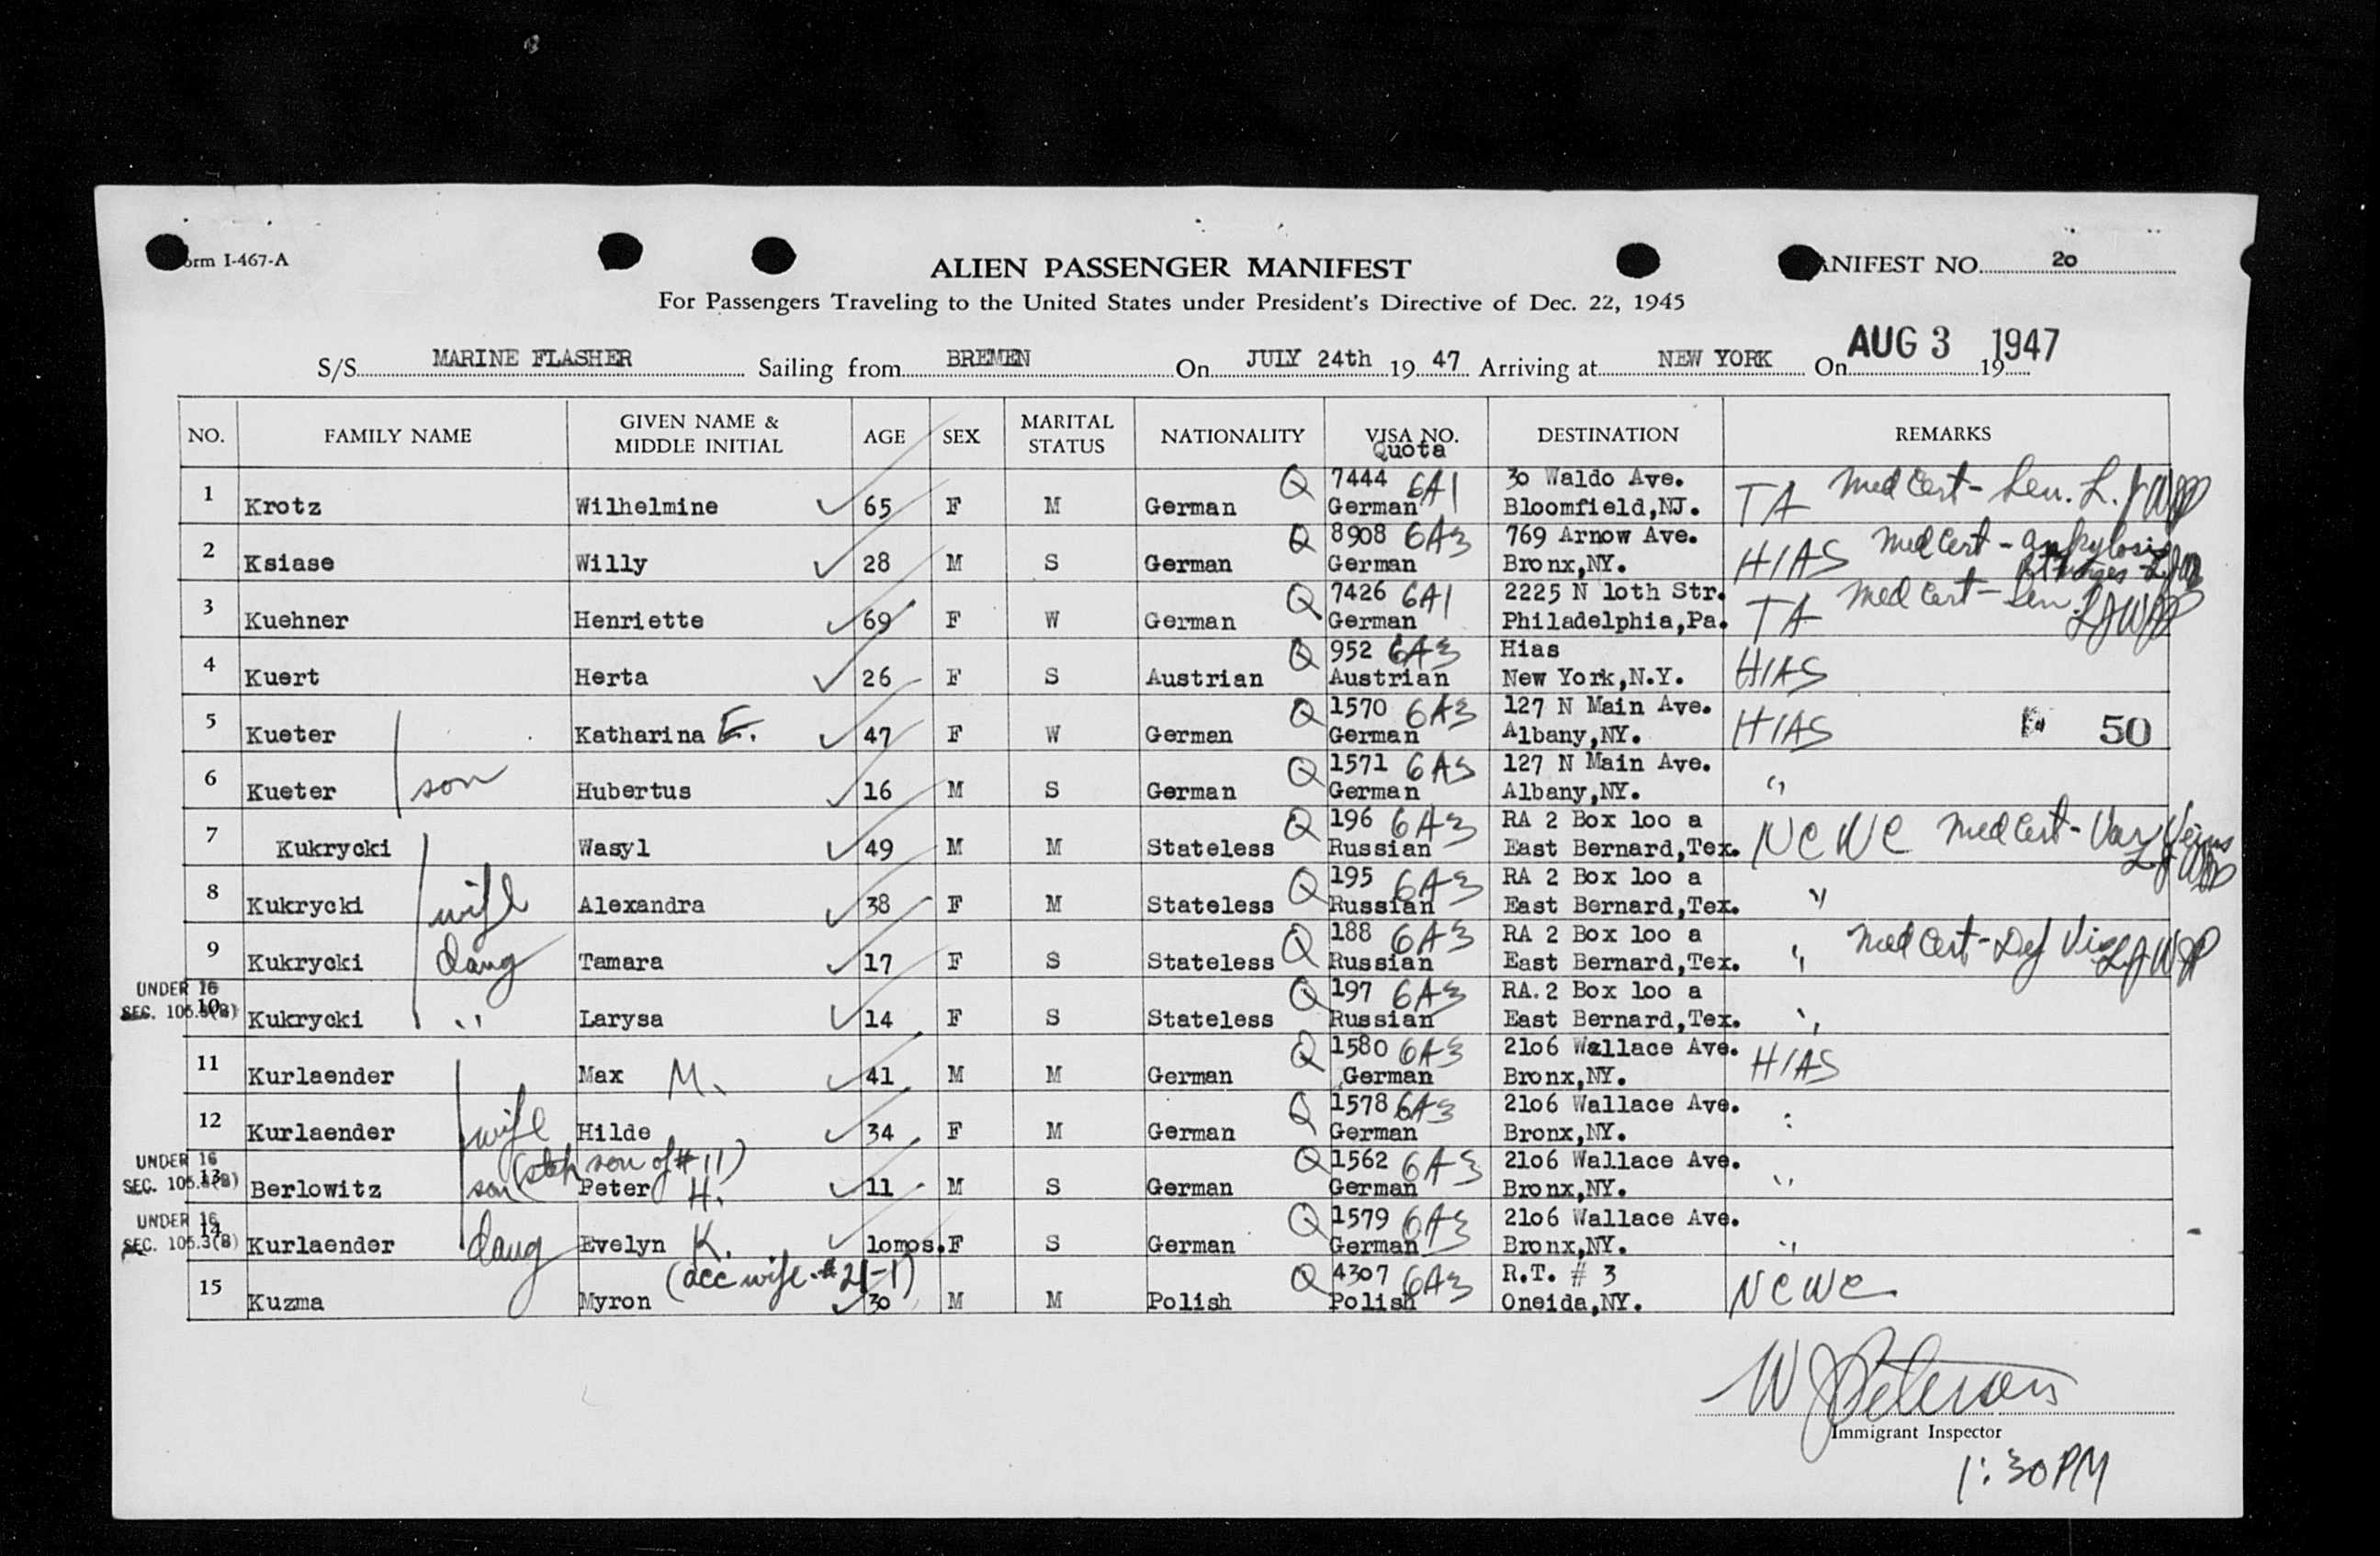 orm I-467-A
ALIEN PASSENGER MANIFEST
ANIFEST NO. 20
For Passengers Traveling to the United States under President's Directive of Dec. 22, 1945
S/S MARINE FLASHER Sailing from BREMEN On JULY 24th 19 47 Arriving at NEW YORK On AUG 3 1947 19
NO. FAMILY NAME GIVEN NAME & MIDDLE INITIAL AGE SEX MARITAL STATUS NATIONALITY VISA NO. Quota DESTINATION REMARKS
Q 7444 6A1 30 Waldo Ave. Med Cert - Sen.
1 Krotz Wilhelmine 65 F M German German Bloomfield,NJ. TA
Q 8908 6A3 769 Arnow Ave. Med Cert - ankylosis
2 Ksiase Willy 28 M S German German Bronx,NY. HIAS
Q 7426 6A1 2225 N 1oth Str. Med Cert - Sen.
3 Kuehner Henriette 69 F W German German Philadelphia,Pa. TA
Q 952 6A3 Hias
4 Kuert Herta 26 F S Austrian Austrian New York,N.Y. HIAS
Q 1570 6A3 127 N Main Ave.
5 Kueter Katharina E. 47 F W German German Albany,NY. HIAS 50
Q 1571 6A3 127 N Main Ave.
6 Kueter son Hubertus 16 M S German German Albany,NY. "
Q 196 6A3 RA 2 Box 1oo a
7 Kukrycki Wasyl 49 M M Stateless Russian East Bernard,Tex. NCWC Med Cert - Var Veins
Q 195 6A3 RA 2 Box 1oo a
8 Kukrycki wife Alexandra 38 F M Stateless Russian East Bernard,Tex. "
Q 188 6A3 RA 2 Box 1oo a
9 Kukrycki daug Tamara 17 F S Stateless Russian East Bernard,Tex. " Med Cert - Def Vis
UNDER 16 Q 197 6A3 RA.2 Box 1oo a
SEC. 105.3(B) 10 Kukrycki " Larysa 14 F S Stateless Russian East Bernard,Tex. "
Q 1580 6A3 21o6 Wallace Ave.
11 Kurlaender Max M. 41 M M German German Bronx,NY. HIAS
Q 1578 6A3 21o6 Wallace Ave.
12 Kurlaender wife Hilde 34 F M German German Bronx,NY. "
UNDER 16 (step son of #11) Q 1562 6A3 21o6 Wallace Ave.
SEC. 105.3(B) 13 Berlowitz son Peter H. 11 M S German German Bronx,NY. "
UNDER 16 Q 1579 6A3 21o6 Wallace Ave.
SEC. 105.3(B) 14 Kurlaender daug Evelyn K. 1omos. F S German German Bronx,NY. "
(acc wife - #21-1) Q 4307 6A3 R.T. # 3
15 Kuzma Myron 30 M M Polish Polish Oneida,NY. NCWC
W J Peterson
Immigrant Inspector
1:30 PM